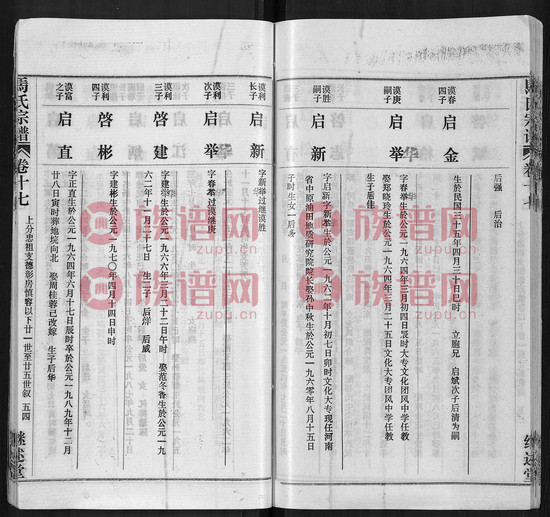 后强　后治
谟春四子　启金
生於民国三十五年四月三十日巳时　立胞兄　启斌次子后清为嗣
谟庚嗣子　启举
字春举生於公元一九六四年三月初四日辰时大专文化团风中学任教
娶郑晓玲生於公元一九六四年三月二十五日文化大专团风中学任教
生子后佳
谟胜嗣子　启新
字启新字新举生於公元一九六二年十月初七日卯时文化大专现任河南
省中原油田地质研究院院长娶孙中秋生於公元一九六零年八月十五日
子时生女一后
谟利长子　启新
字新举过继谟胜
谟利次子　启举
字春举过谟庚
谟利三子　啓建
字建举生於公元一九六六年三月二十二日午时　娶范冬香生於公元一九
六二年十一月二十七日　生二子　后烊　后威
谟利四子　啓彬
字建彬生於公元一九七〇年四月十四日申时
谟富之子　启直
字正直生於公元一九六四年六月十七日辰时卒於公元一九八九年十二月
廿八日寅时葬地坑向北　娶周桂蓉已改嫁　生子后华
上分忠祖支德彰房慎容以下廿一世至廿五世叙　五四
馬氏宗譜　卷十七
继述堂
族谱网
zupu.cn